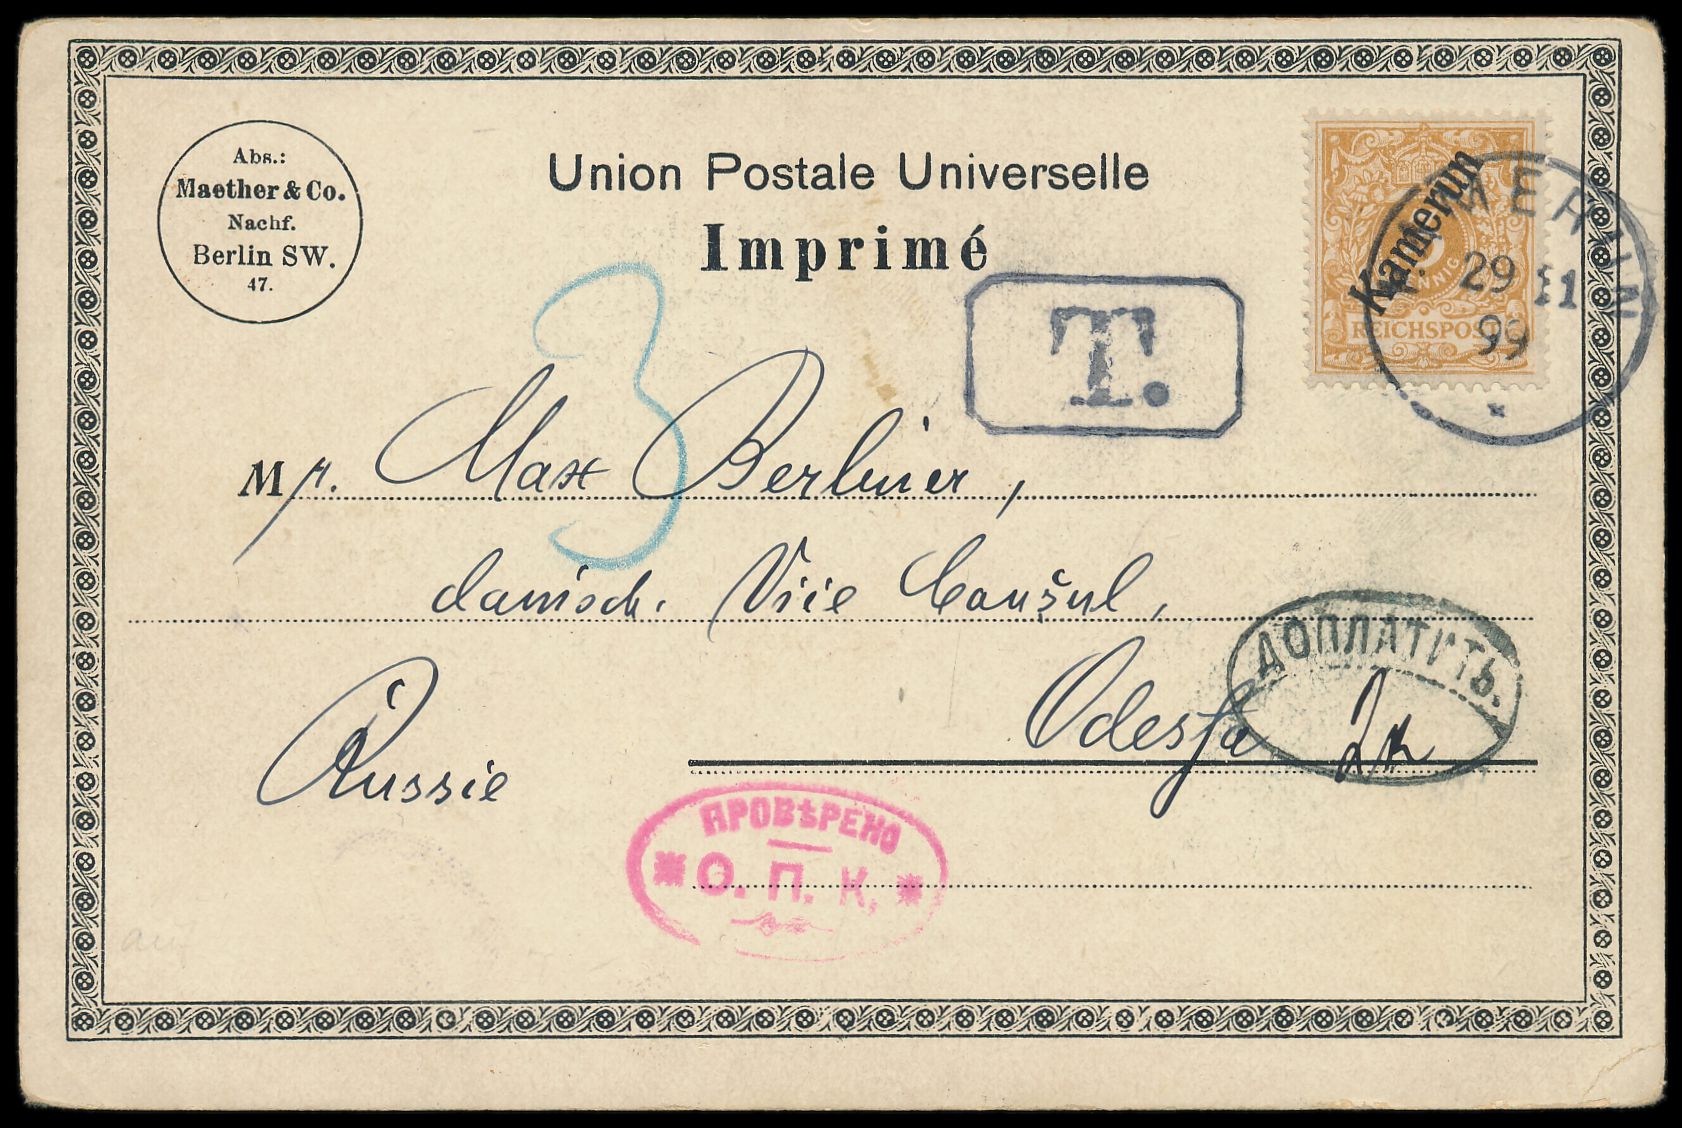 Abs.:
Maether & Co.
Nachf.
Berlin SW.
47.
Union Postale Universelle
Imprimé
3
T.
Kamerun
REICHSPOST
29 11
99
Mr. Max Berliner,
dänisch. Vice Consul,
Odessa
Russie
ДОПЛАТИТЬ.
2к
ПРОВѢРЕНО
О. П. К.